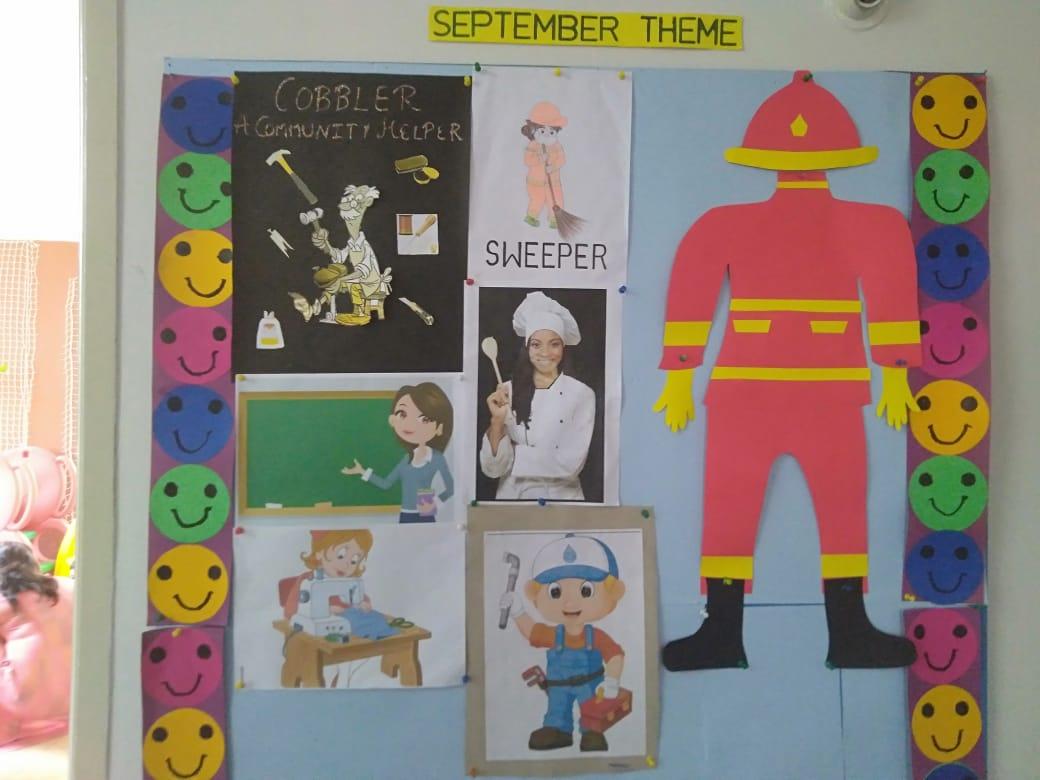 SEPTEMBER THEME
COBBLER
A COMMUNITY HELPER
SWEEPER